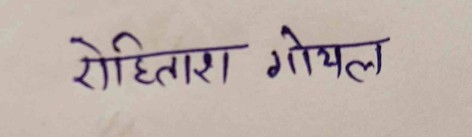 रोहिताश गोयल